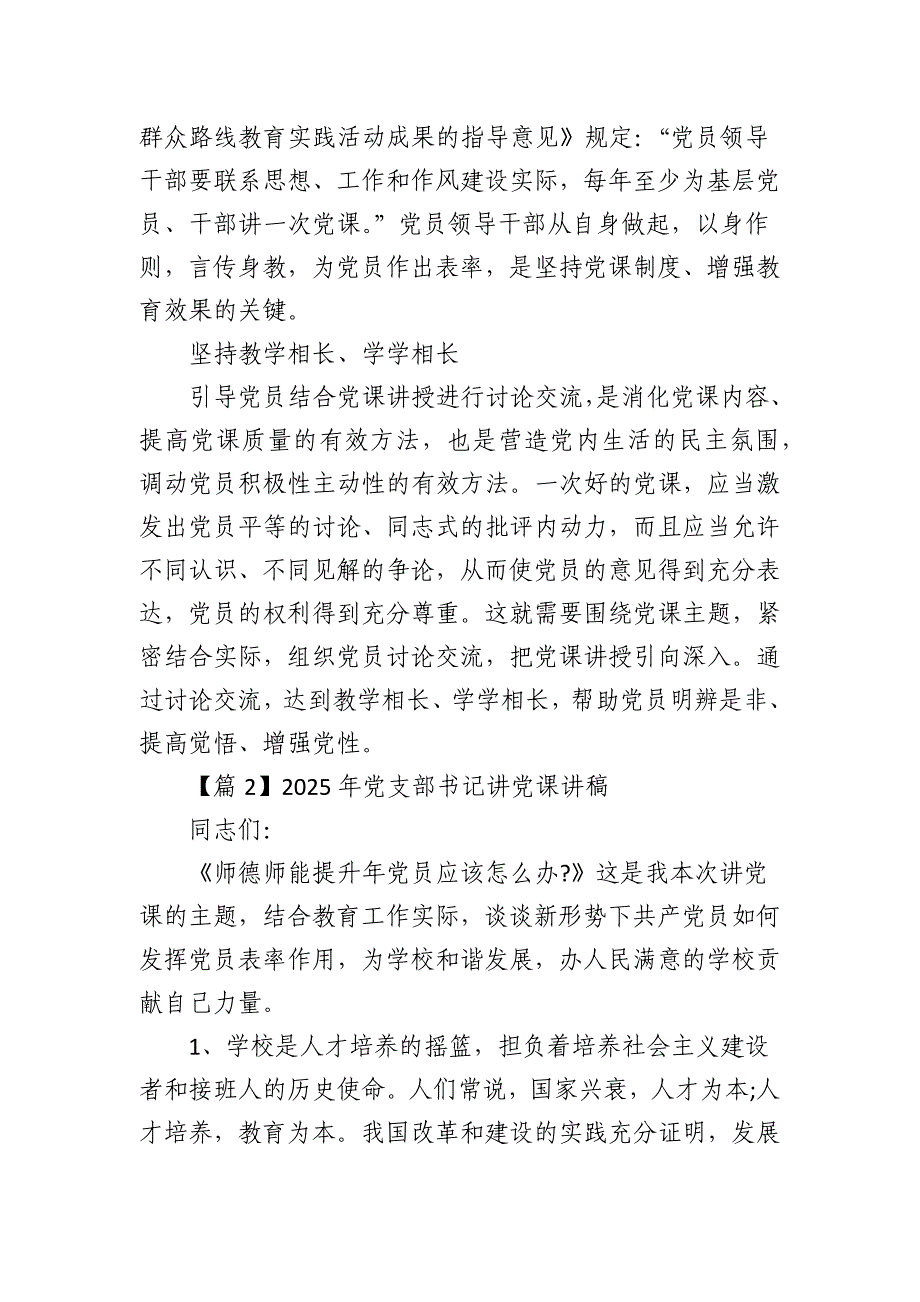 群众路线教育实践活动成果的指导意见》规定：“党员领导
干部要联系思想、工作和作风建设实际，每年至少为基层党
员、干部讲一次党课。”党员领导干部从自身做起，以身作
则，言传身教，为党员作出表率，是坚持党课制度、增强教
育效果的关键。
坚持教学相长、学学相长
引导党员结合党课讲授进行讨论交流，是消化党课内容、
提高党课质量的有效方法，也是营造党内生活的民主氛围，
调动党员积极性主动性的有效方法。一次好的党课，应当激
发出党员平等的讨论、同志式的批评内动力，而且应当允许
不同认识、不同见解的争论，从而使党员的意见得到充分表
达，党员的权利得到充分尊重。这就需要围绕党课主题，紧
密结合实际，组织党员讨论交流，把党课讲授引向深入。通
过讨论交流，达到教学相长、学学相长，帮助党员明辨是非、
提高觉悟、增强党性。
【篇 2】2025 年党支部书记讲党课讲稿
同志们：
《师德师能提升年党员应该怎么办?》这是我本次讲党
课的主题，结合教育工作实际，谈谈新形势下共产党员如何
发挥党员表率作用，为学校和谐发展，办人民满意的学校贡
献自己力量。
1、学校是人才培养的摇篮，担负着培养社会主义建设
者和接班人的历史使命。人们常说，国家兴衰，人才为本;人
才培养，教育为本。我国改革和建设的实践充分证明，发展